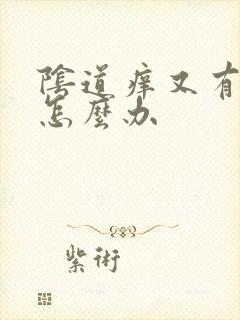 陰道痒又有
怎麼办
紫術